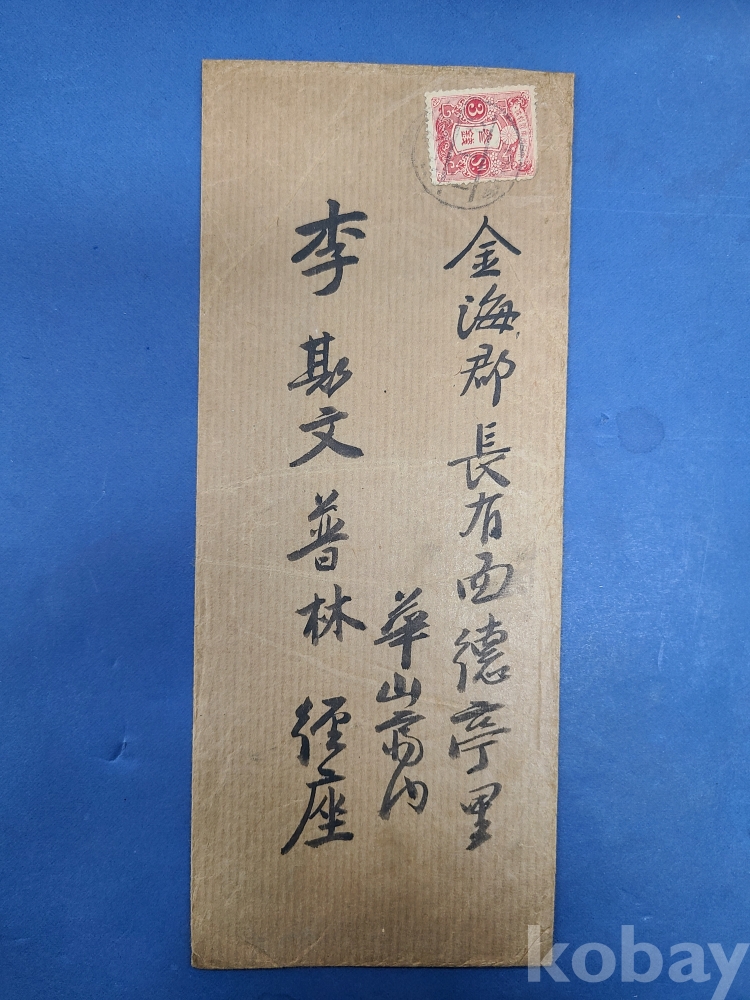 金海郡長有面德亭里
華山斎内
李斯文普林 經座
kobay